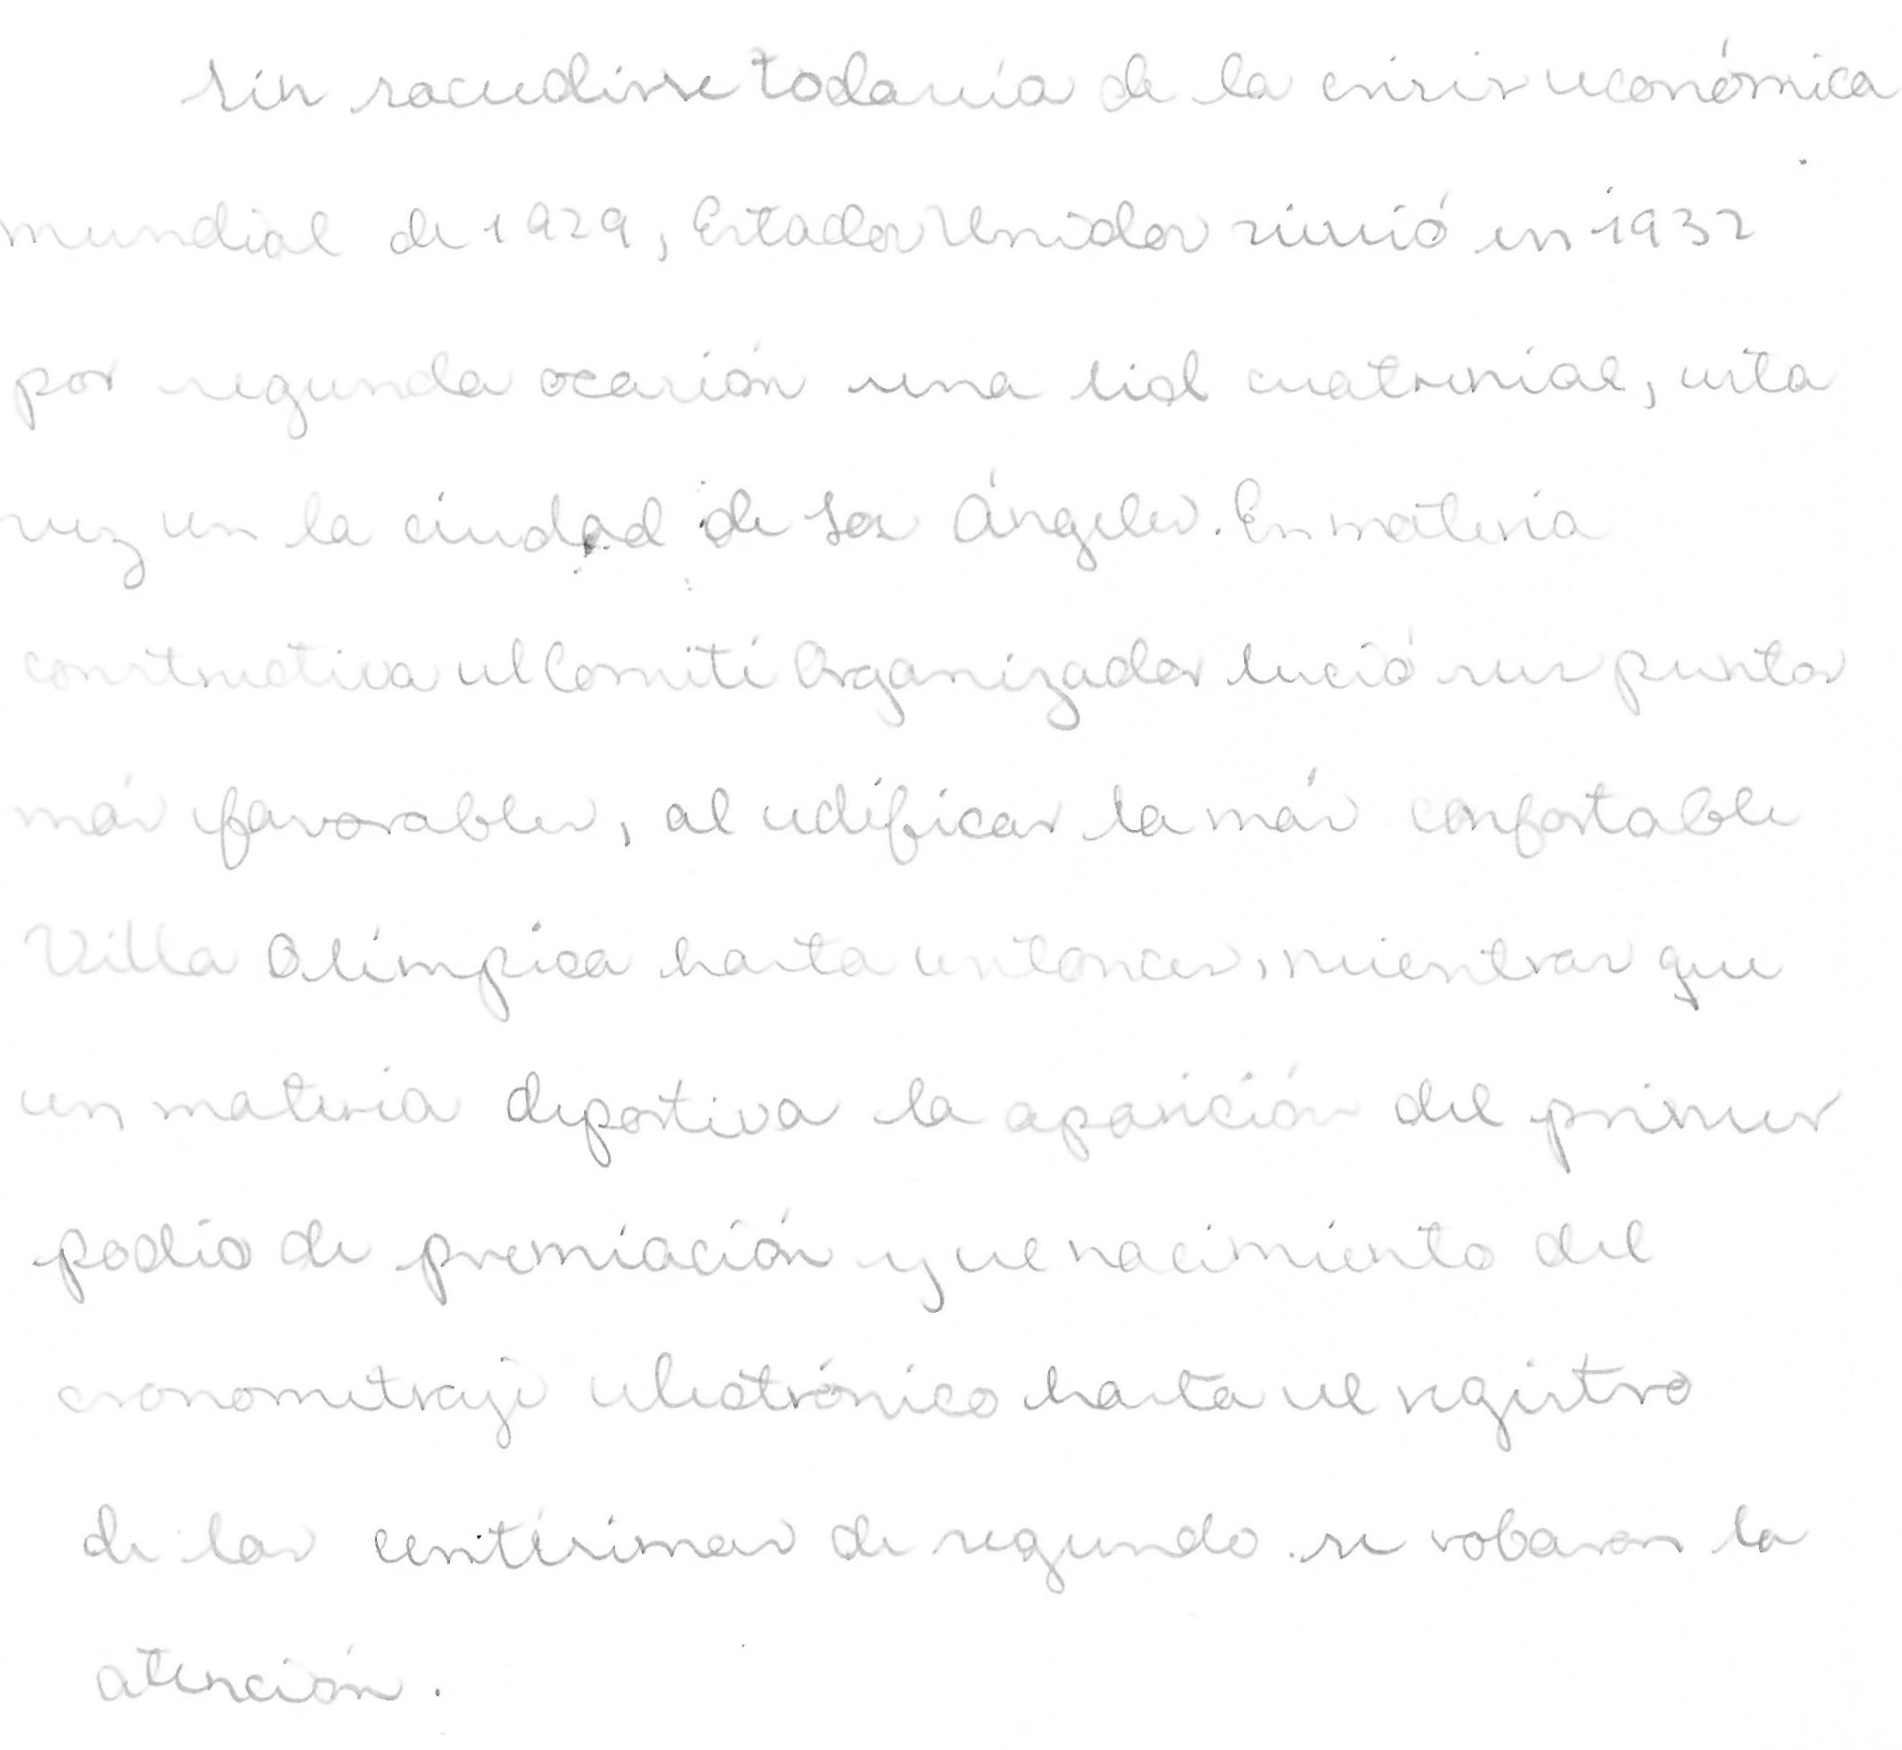 Sin sacudirse todavía de la crisis económica
mundial de 1929, Estados Unidos vivió en 1932
por segunda ocasión una lid cuatrienial, esta
vez en la ciudad de Los Ángeles. En materia
constructiva el Comité Organizador lució sus puntos
más favorables, al edificar la más confortable
Villa Olímpica hasta entonces, mientras que
en materia deportiva la aparición del primer
podio de premiación y el nacimiento del
cronometraje electrónico hasta el registro
de las centésimas de segundo se robaron la
atención.